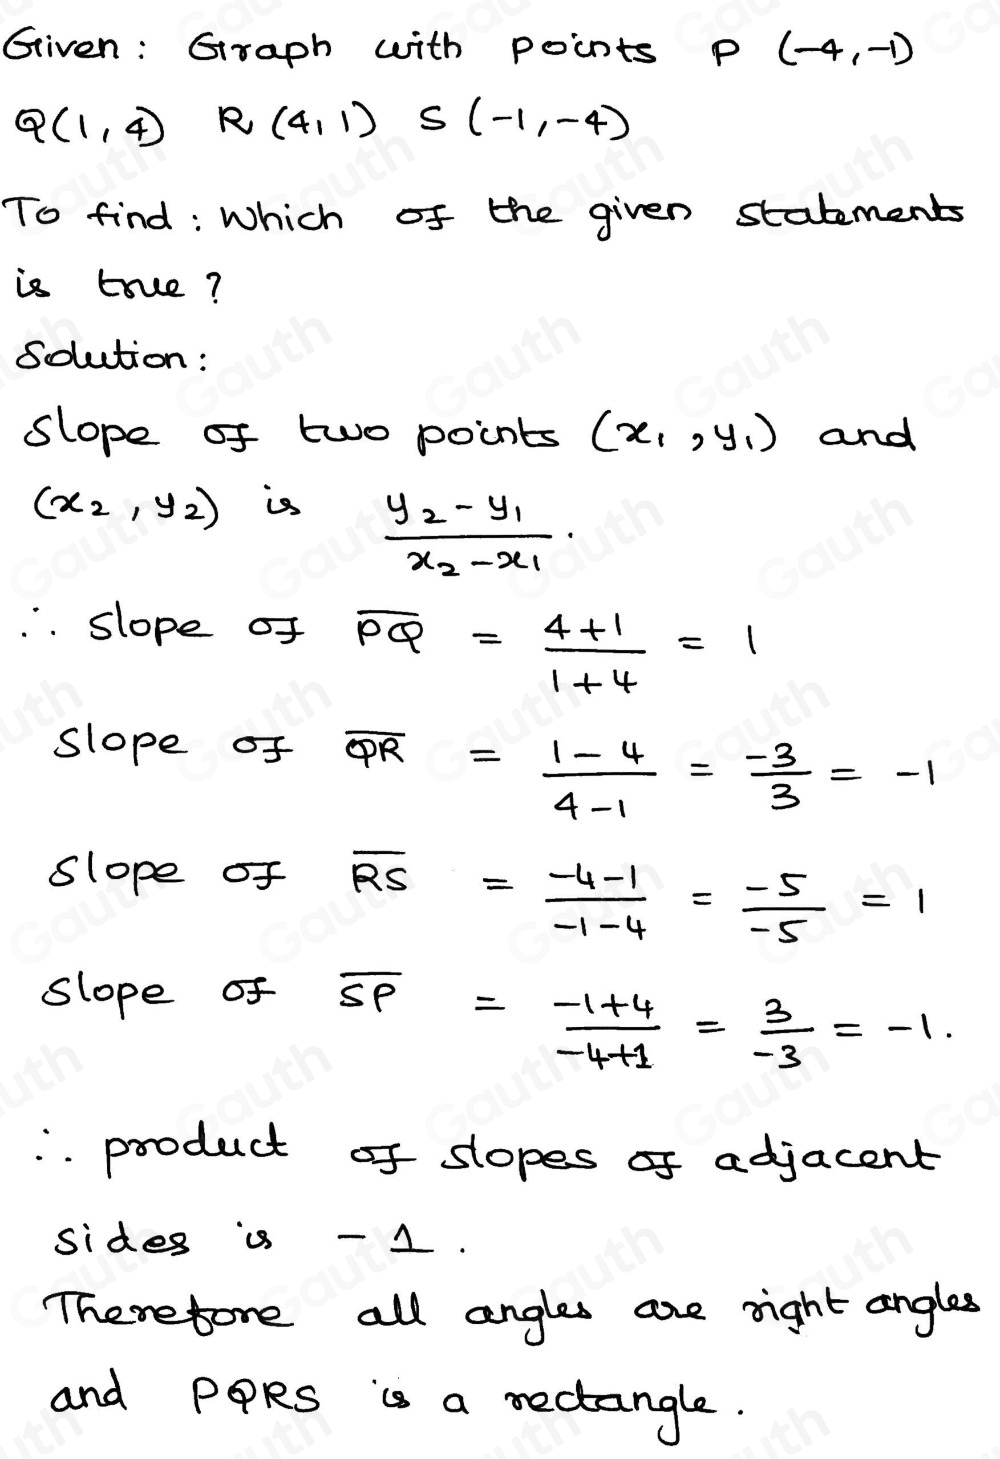 Given: Graph with points P (-4,-1)
Q(1,4) R(4,1) S(-1,-4)
To find: Which of the given statements
is true?
Solution:
Slope of two points (x₁,y₁) and
(x₂,y₂) is (y₂-y₁)/(x₂-x₁).
∴ Slope of P̅Q̅ = (4+1)/(1+4) = 1
Slope of Q̅R̅ = (1-4)/(4-1) = -3/3 = -1
Slope of R̅S̅ = (-4-1)/(-1-4) = -5/-5 = 1
Slope of S̅P̅ = (-1+4)/(-4+1) = 3/-3 = -1.
∴ product of slopes of adjacent
sides is -1.
Therefore all angles are right angles
and PQRS is a rectangle.